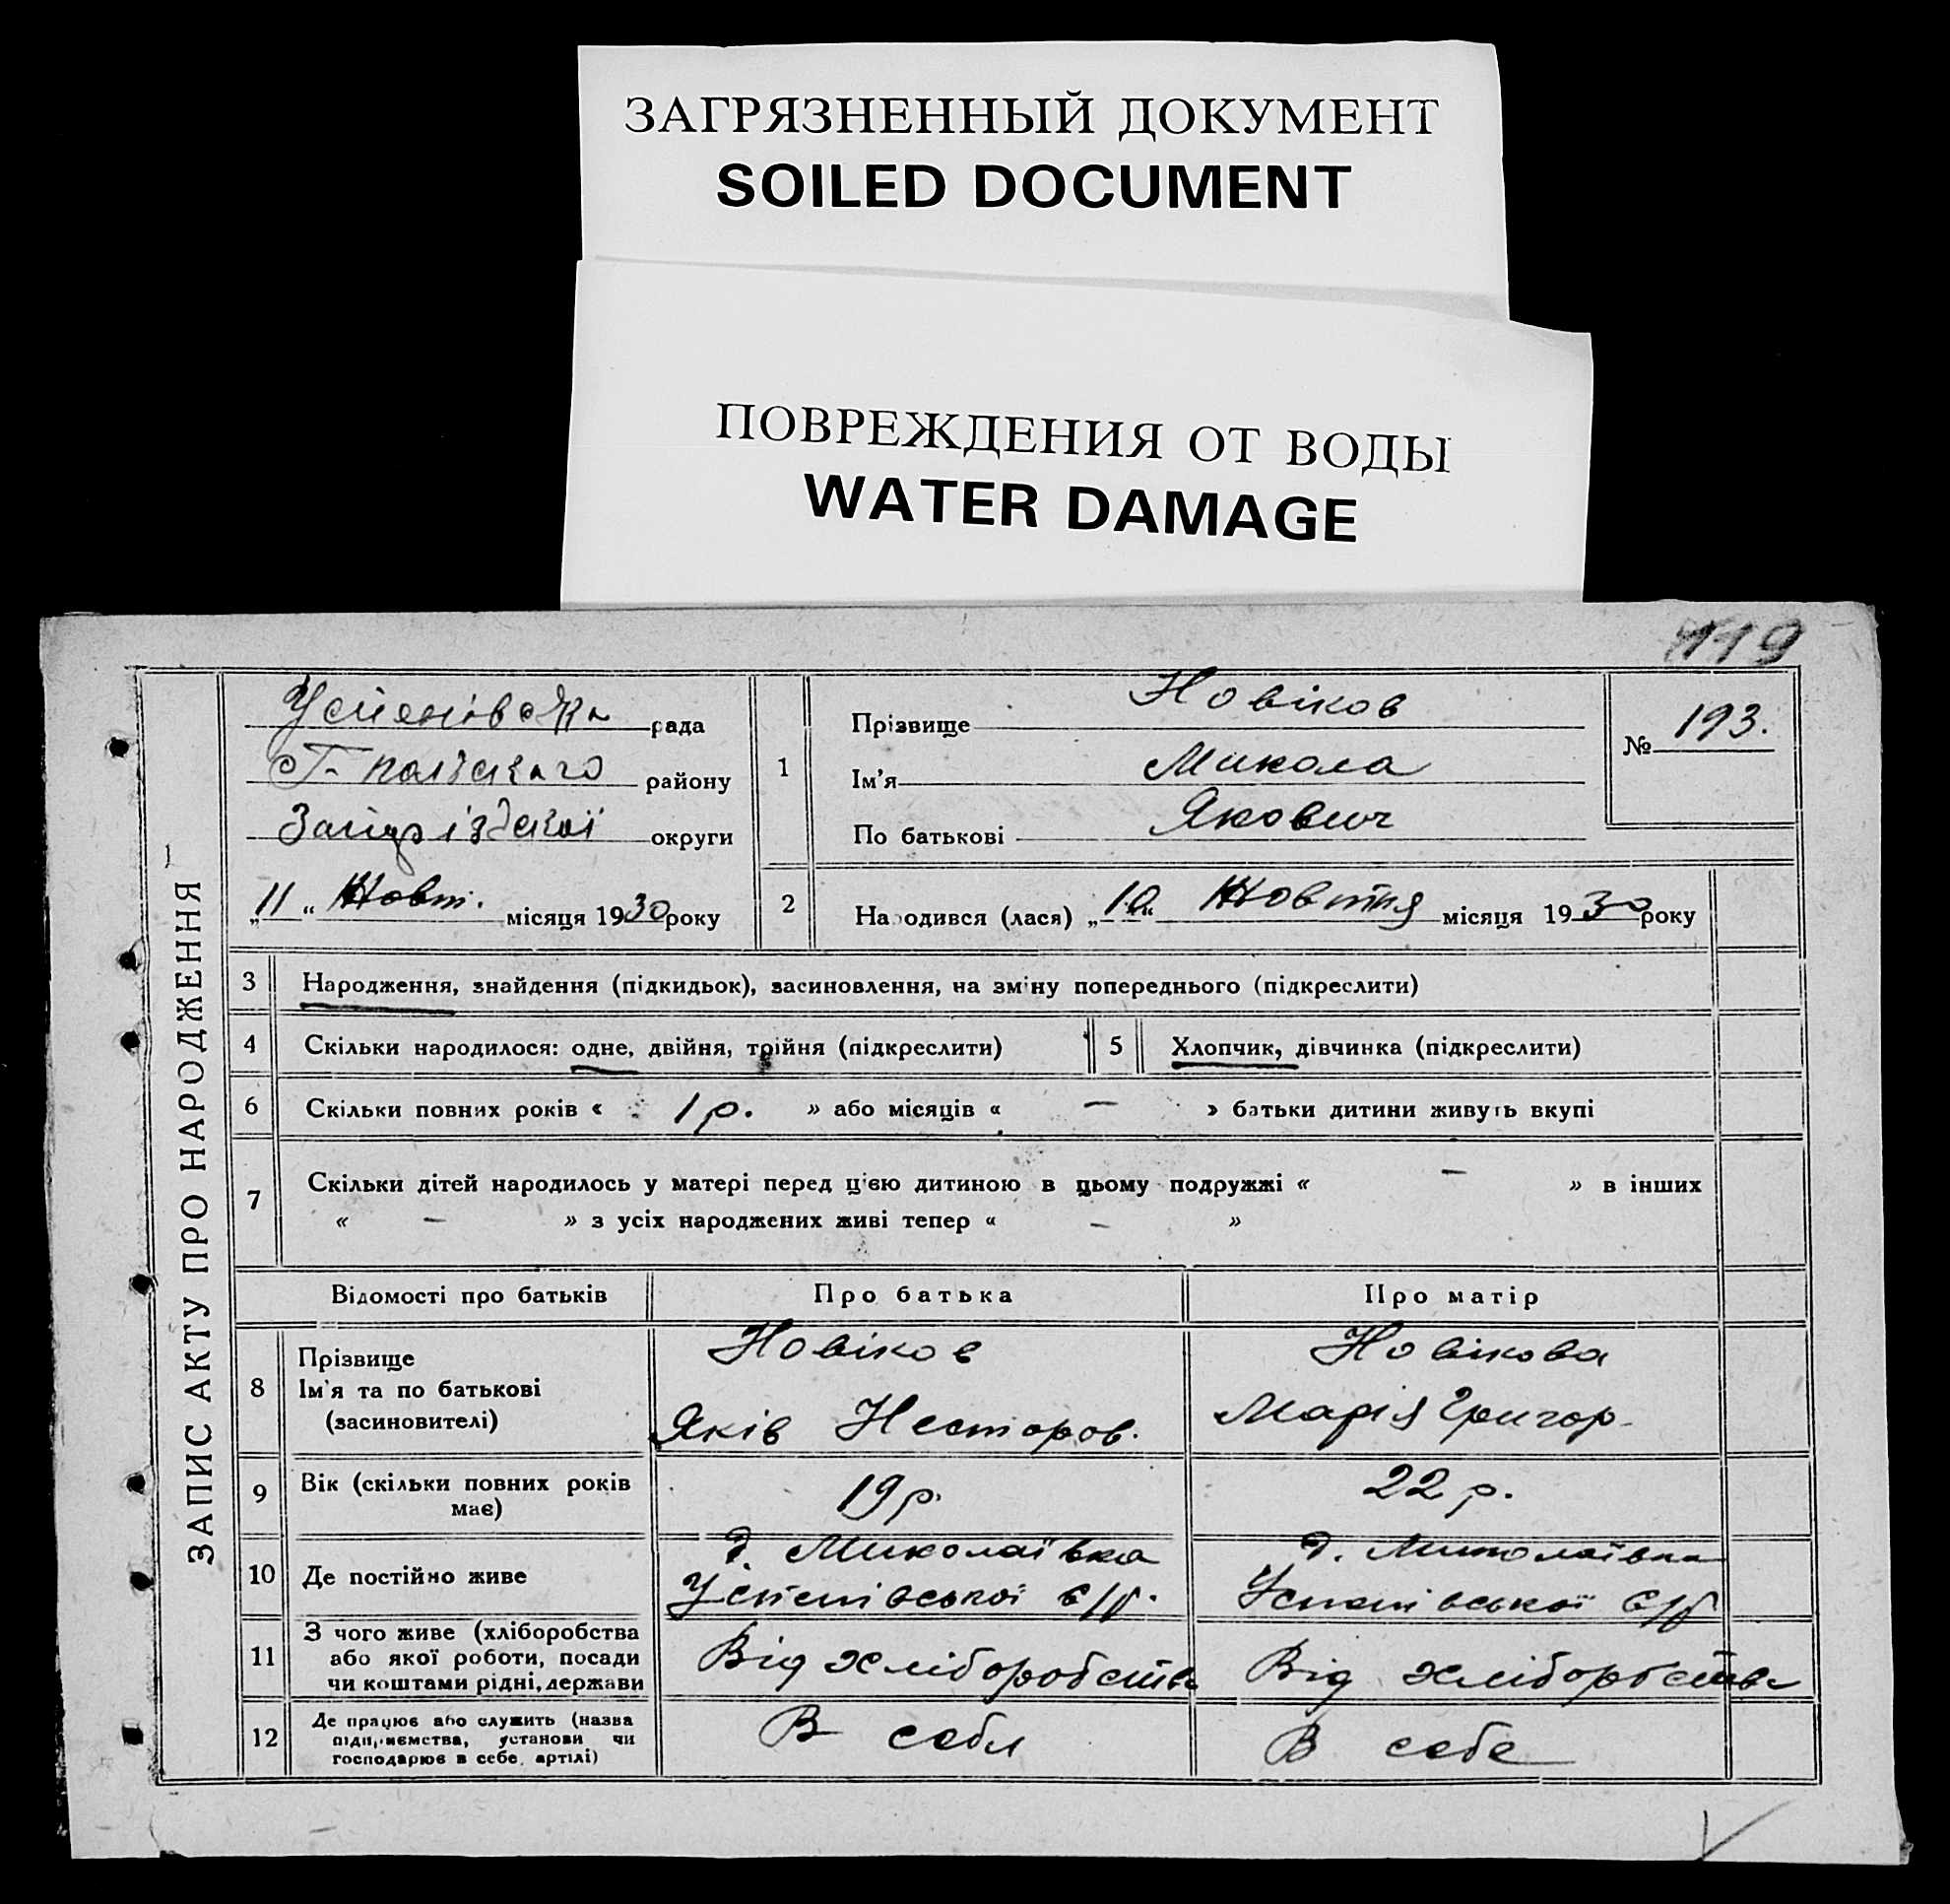 ЗАГРЯЗНЕННЫЙ ДОКУМЕНТ
SOILED DOCUMENT
ПОВРЕЖДЕНИЯ ОТ ВОДЫ
WATER DAMAGE
119
ЗАПИС АКТУ ПРО НАРОДЖЕННЯ
рада
району
округи
„11“ Жовт. місяця 1930 року
1
Прізвище Новіков
Ім'я Микола
По батькові Якович
№ 193.
2
Народився (лася) „10“ Жовтня місяця 1930 року
3 Народження, знайдення (підкидьок), засиновлення, на зміну попереднього (підкреслити)
4 Скільки народилося: одне, двійня, трійня (підкреслити)
5 Хлопчик, дівчинка (підкреслити)
6 Скільки повних років « 1 р. » або місяців « — » батьки дитини живуть вкупі
7 Скільки дітей народилось у матері перед цією дитиною в цьому подружжі « — » в інших
« — » з усіх народжених живі тепер « — »
Відомості про батьків
Про батька
Про матір
8
Прізвище
Ім'я та по батькові
(засиновителі)
Новіков
Яків Несторов.
Новікова
Марія Григор-
9
Вік (скільки повних років
має)
19 р.
22 р.
10 Де постійно живе
д. Миколаївка
Успенівської с/р.
д. Миколаївка
Успенівської с/р
11
З чого живе (хліборобства
або якої роботи, посади
чи коштами рідні, держави
Від хліборобства
Від хліборобства
12
Де працює або служить (назва
підприємства, установи чи
господарює в себе, артілі)
В себя
В себе